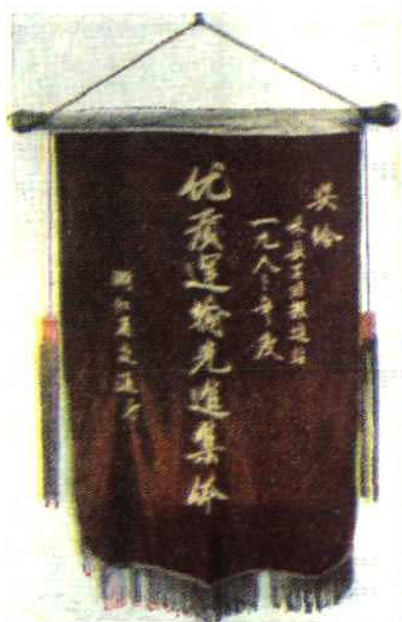 奖给
一九八二年度
优质运输先进集体
浙江省交通厅